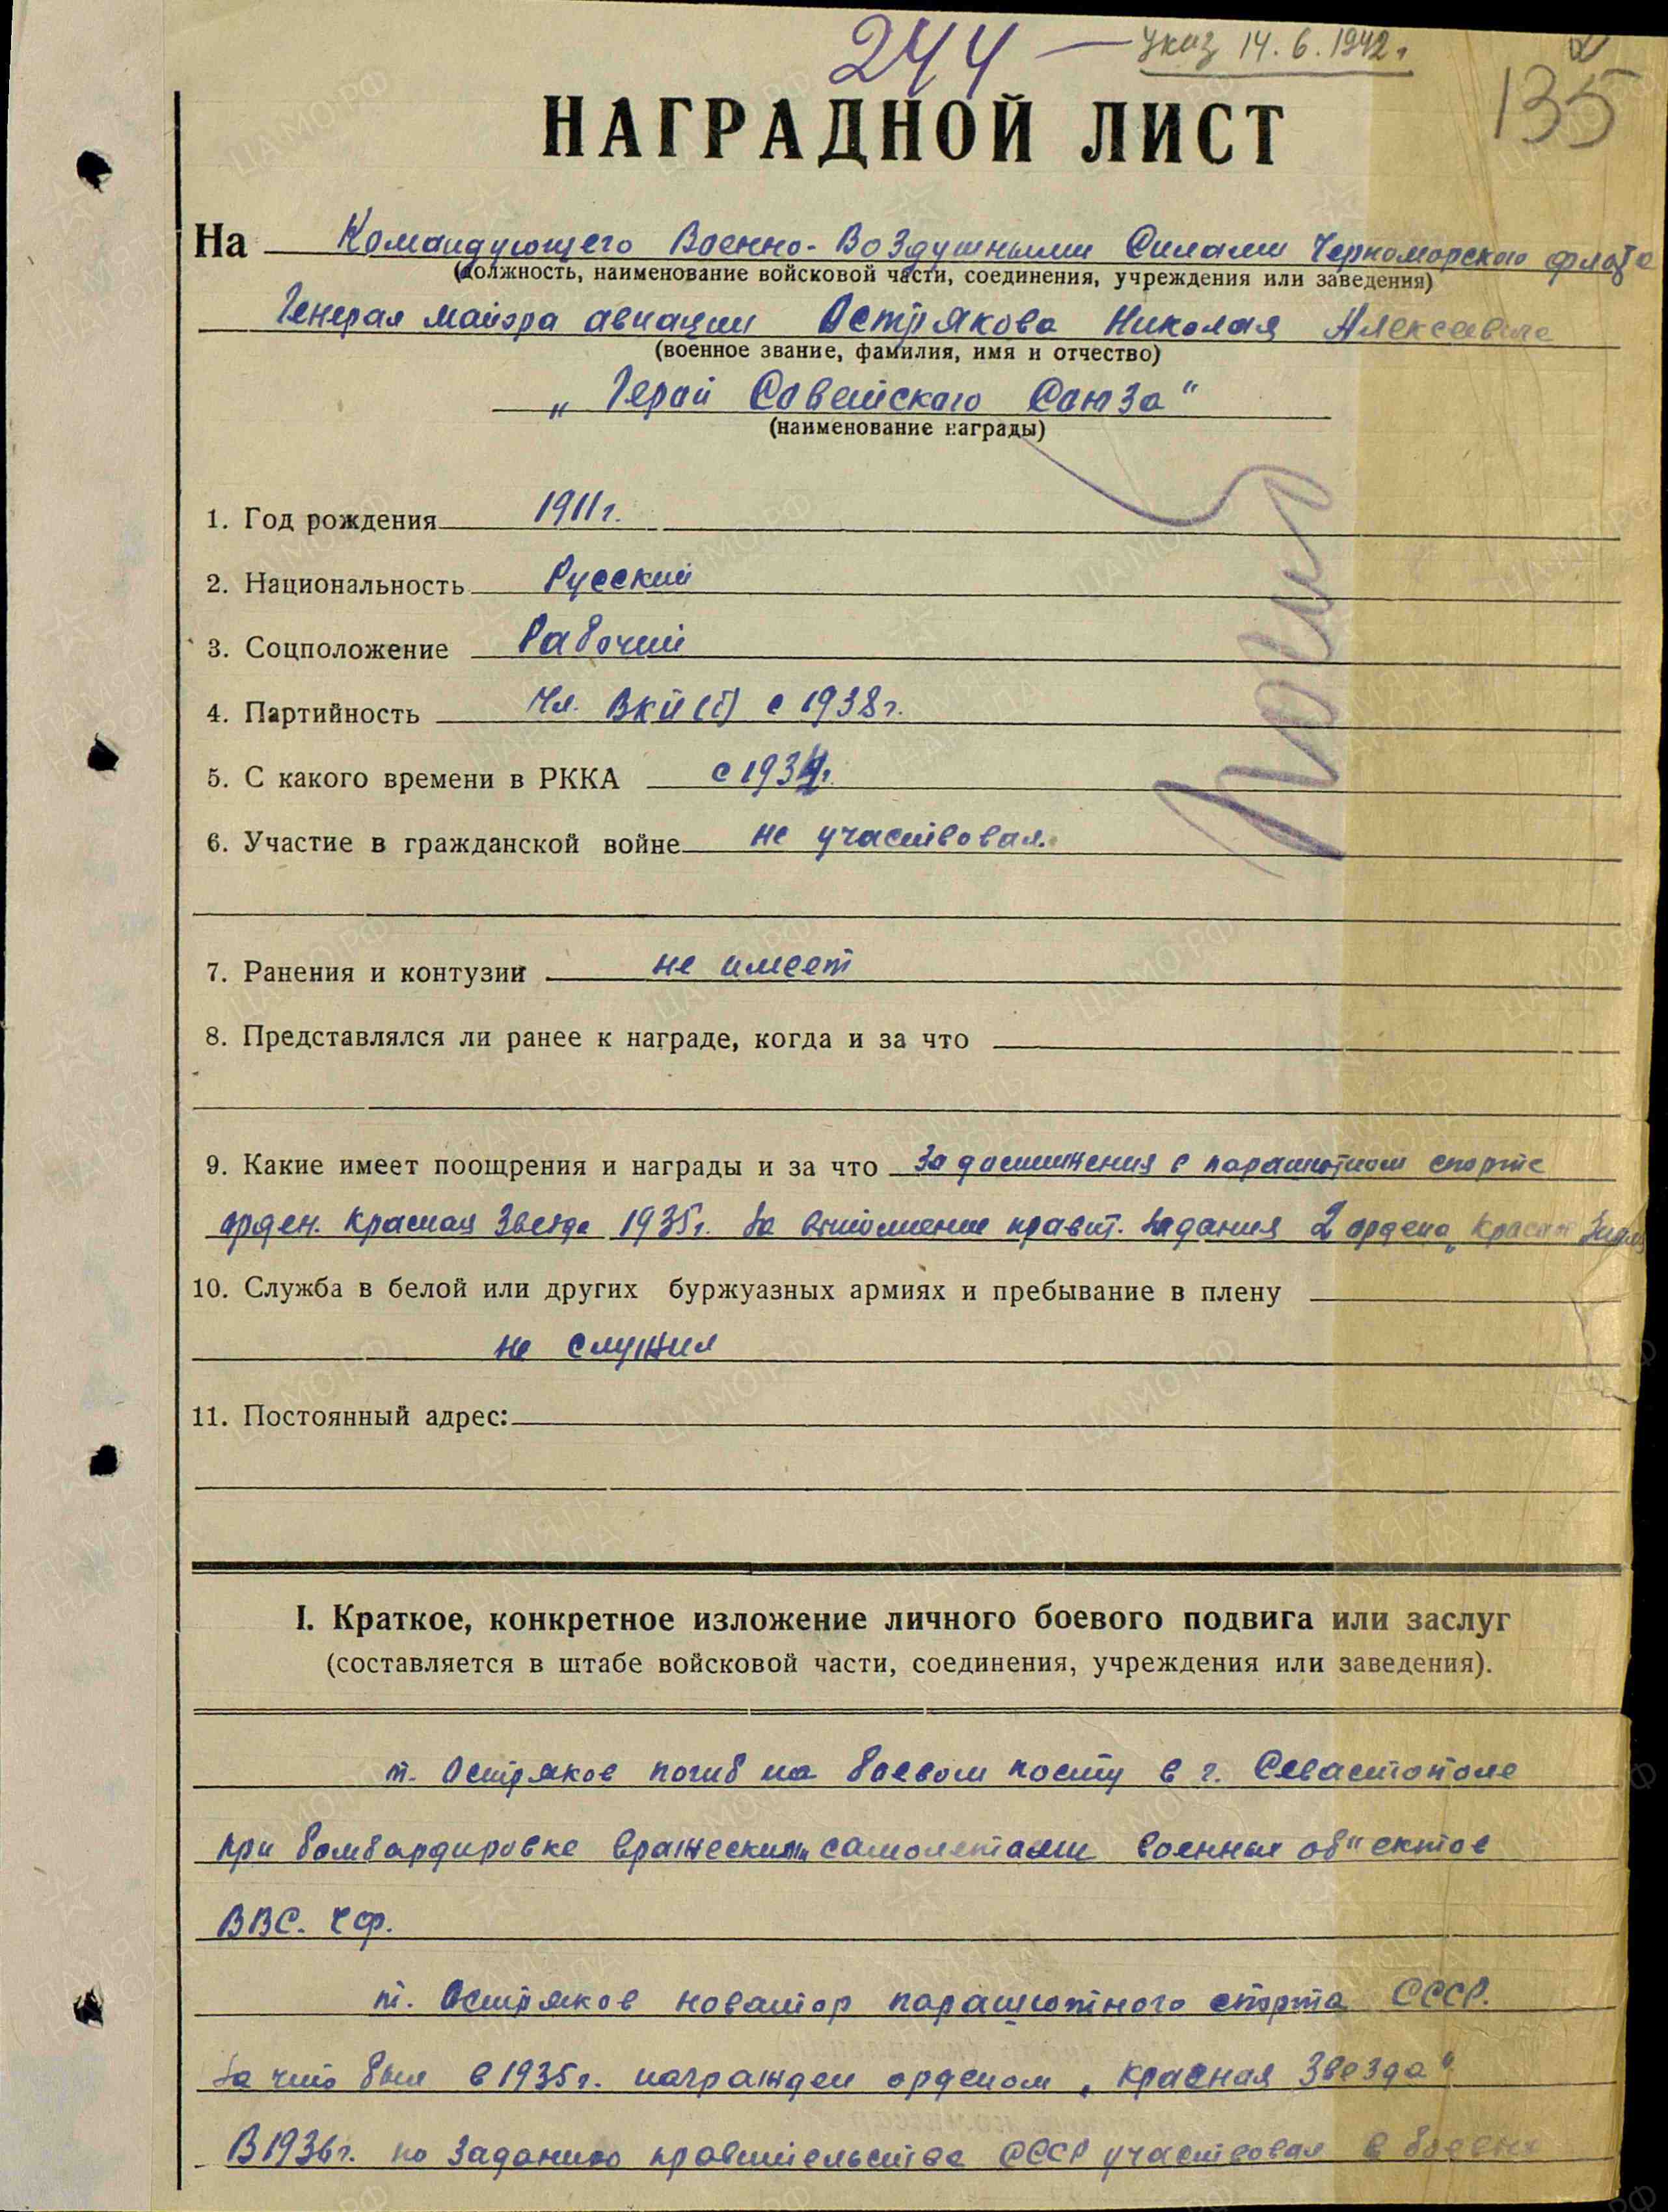 244 — Указ 14.6.1942 г
135
НАГРАДНОЙ ЛИСТ
На Командующего Военно-Воздушными Силами Черноморского флота
(должность, наименование войсковой части, соединения, учреждения или заведения)
Генерал майора авиации Острякова Николая Алексеевича
(военное звание, фамилия, имя и отчество)
„Герой Советского Союза"
(наименование награды)
1. Год рождения 1911 г.
2. Национальность Русский
3. Соцположение Рабочий
4. Партийность Чл. ВКП(б) с 1938 г.
5. С какого времени в РККА с 1934 г.
6. Участие в гражданской войне не участвовал.
7. Ранения и контузии не имеет
8. Представлялся ли ранее к награде, когда и за что
9. Какие имеет поощрения и награды и за что За достижения в парашютном спорте
орден. Красная Звезда 1935 г. За выполнение правит. задания 2 ордена „Красное Знамя
10. Служба в белой или других буржуазных армиях и пребывание в плену
не служил
11. Постоянный адрес:
I. Краткое, конкретное изложение личного боевого подвига или заслуг
(составляется в штабе войсковой части, соединения, учреждения или заведения).
т. Остряков погиб на боевом посту в г. Севастополе
при бомбардировке вражескими самолетами военных об"ектов
ВВС. ЧФ.
т. Остряков новатор парашютного спорта СССР.
За что был в 1935 г. награжден орденом „Красная Звезда"
В 1936 г. по заданию правительства СССР участвовал в боевых
ЦАМО.РФ
ПАМЯТЬ НАРОДА